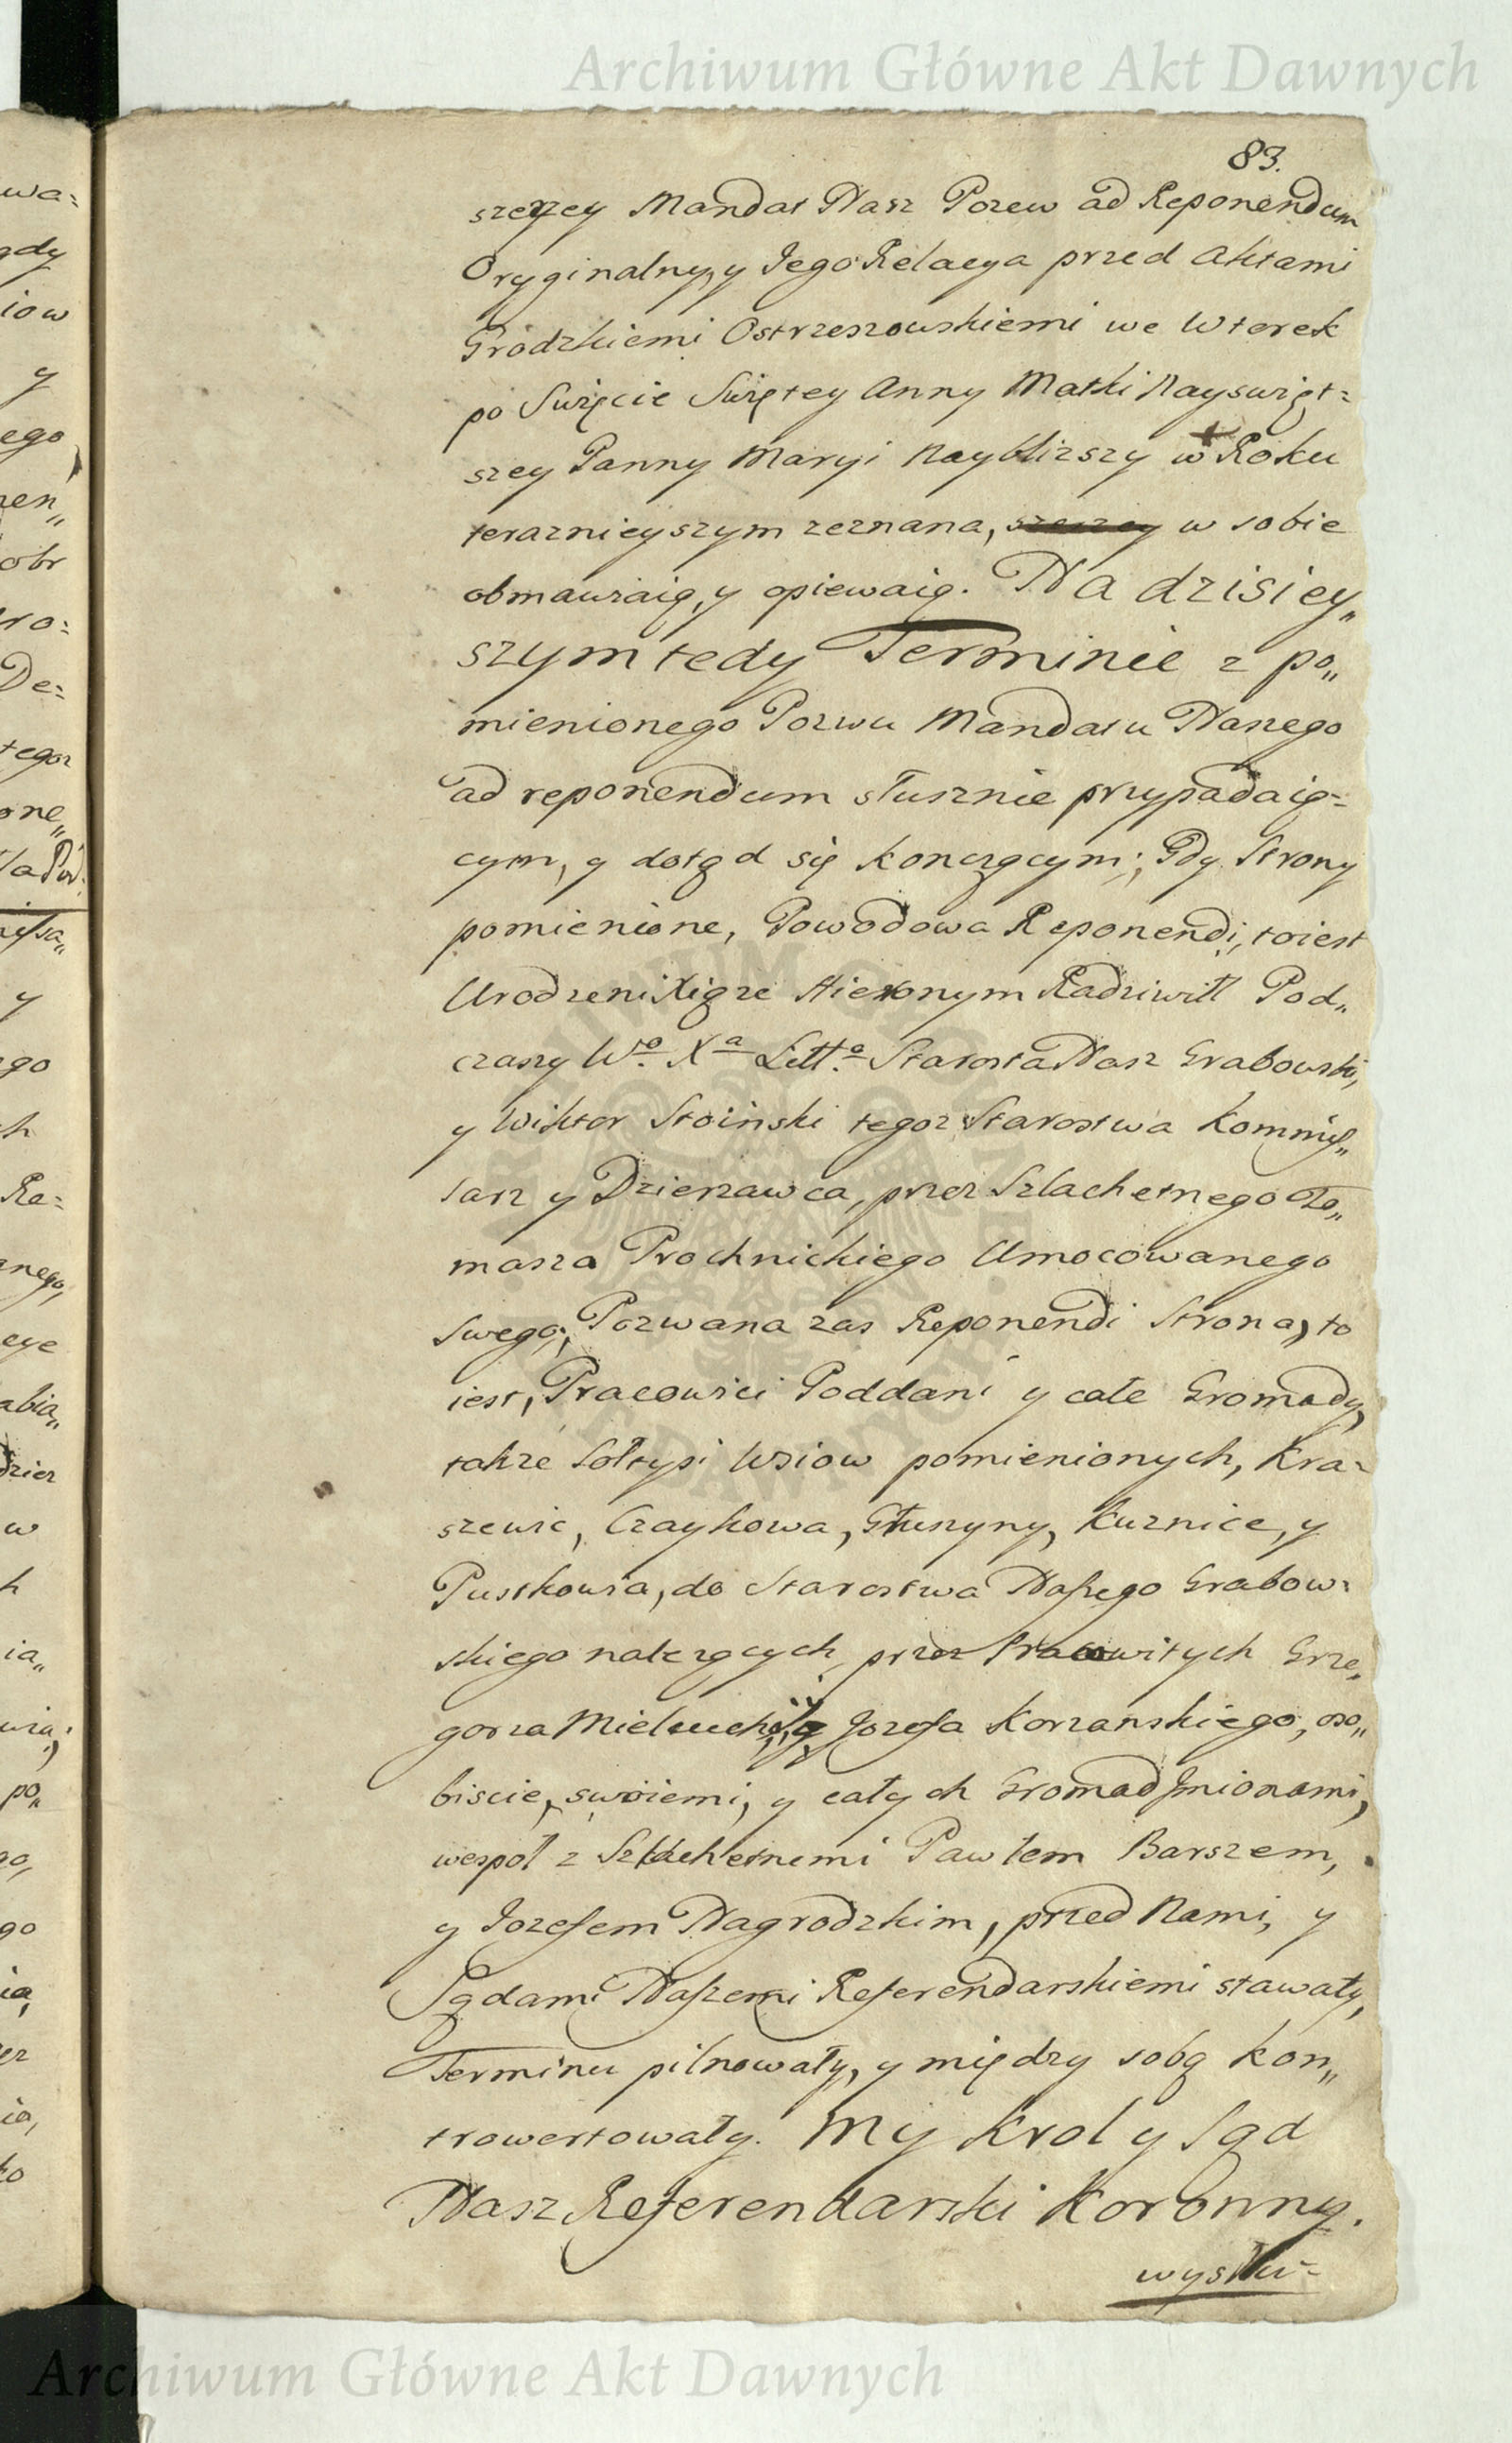 Archiwum Główne Akt Dawnych
83.
szerzey Mandat Nasz Pozew ad Reponendum
Oryginalny, y Jego Relacya przed Aktami
Grodzkiemi Ostrzeszowskiemi we Wtorek
po Swięcie Swiętey Anny Matki Nayswięt=
szey Panny Maryi Nayblizszy w Roku
teraznieyszym zeznana, szerzey w sobie
obmawiaią, y opiewaią. Na dzisiey„
szym tedy Terminie z po„
mienionego Pozwu Mandatu Naszego
ad reponendum słusznie przypadaią=
cym, y dotąd się konczącym; Gdy Strony
pomienione, Powodowa Reponendi, toiest
Urodzeni Xiąze Hieronym Radziwiłł Pod„
czaszy Wo. Xa Litt.o Starosta Nasz Grabowski,
y Wiktor Stoinski tegoz Starostwa Kommis„
sarz y Dzierzawca, przez Szlachetnego To„
masza Prochnickiego Umocowanego
Swego; Pozwana zas Reponendi Strona, to
iest, Pracowici Poddani y całe Gromady,
takze Sołtysi Wsiow pomienionych, Kra=
szewic, Czaykowa, Głuszyny, Kuznice, y
Pustkowia, do Starostwa Naszego Grabow=
skiego nalezących, przez Pracowitych Grze„
gorza Mielucha, y Jozefa Korzanskiego, oso„
biscie, swoiemi, y całych Gromad Jmionami,
wespoł z Szlachetnemi Pawłem Barszem,
y Jozefem Nagrodzkim, przed Nami, y
Sądami Naszemi Referendarskiemi stawały,
Terminu pilnowały, y między sobą kon„
trowertowały. My Krol y Sąd
Nasz Referendarski Koronny.
wysłu=
Archiwum Główne Akt Dawnych